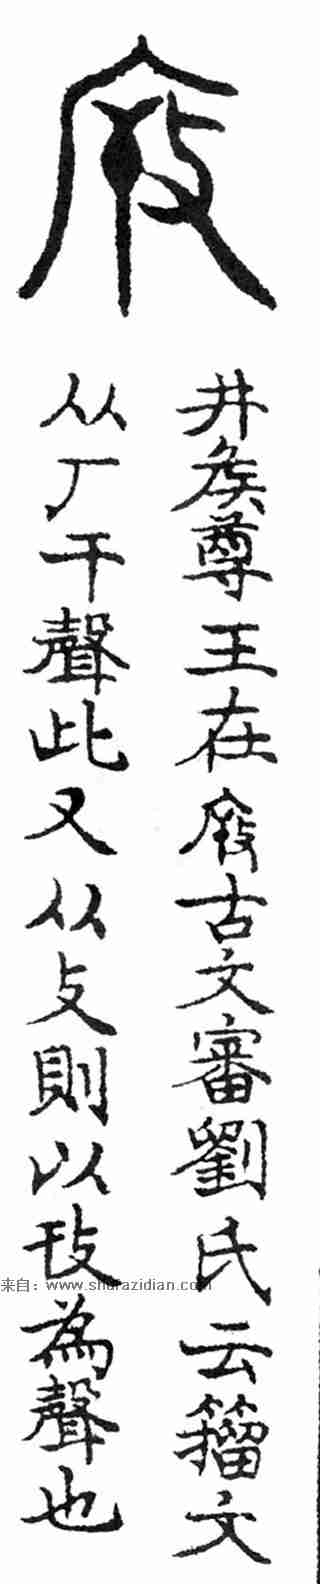 井矦尊王在古文審劉氏云籀文
从厂干聲此又从攴則以攼為聲也
来自：www.shufazidian.com